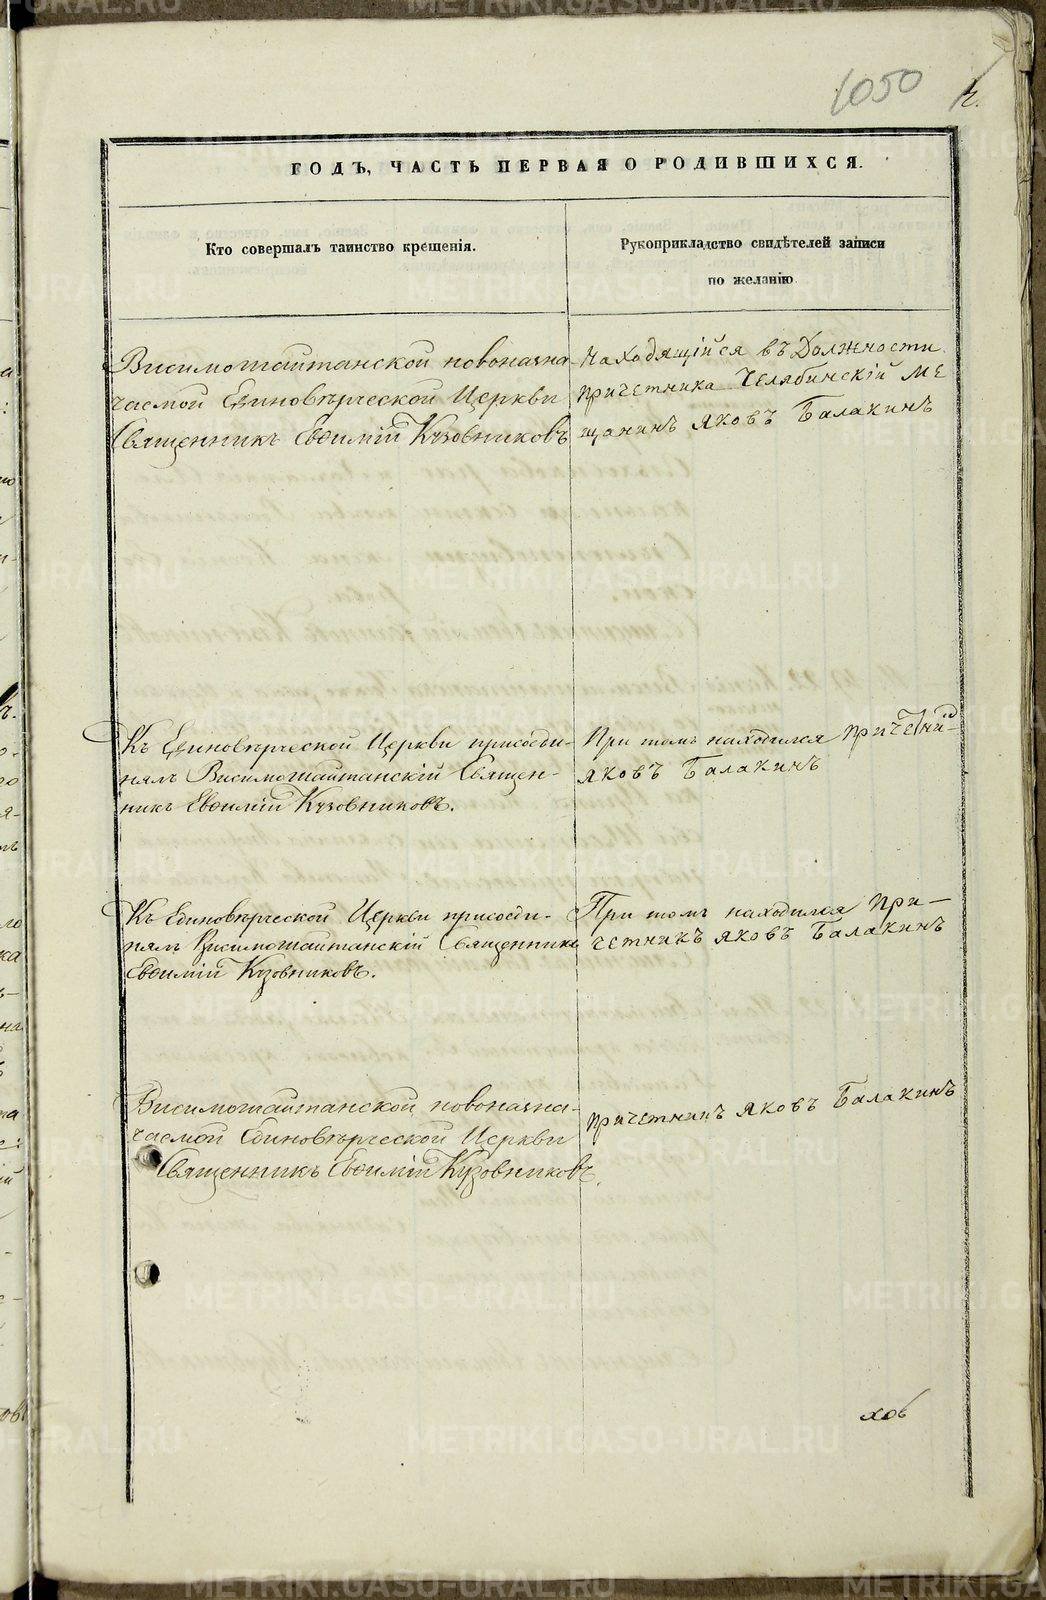 1050
ГОДЪ, ЧАСТЬ ПЕРВАЯ О РОДИВШИХСЯ.
Кто совершалъ таинство крещенія.
Рукоприкладство свидѣтелей записи
по желанію
Висимошайтанской новоназна-
чаемой Единовѣрческой Церкви
Священникъ Евѳимій Кузовниковъ
Находящійся въ Должности
причетника Челябинскій ме
щанинъ Яковъ Балакинъ
Къ Единовѣрческой Церкви присоеди-
нялъ Висимошайтанскій Священ-
никъ Евѳимій Кузовниковъ.
При томъ находился причетникъ
Яковъ Балакинъ
Къ Единовѣрческой Церкви присоеди-
нялъ Висимошайтанскій Священникъ
Евѳимій Кузовниковъ.
При томъ находился при-
четникъ Яковъ Балакинъ
Висимошайтанской новоназна-
чаемой Единовѣрческой Церкви
Священникъ Евѳимій Кузовниковъ.
причетникъ Яковъ Балакинъ
METRIKI.GASO-URAL.RU